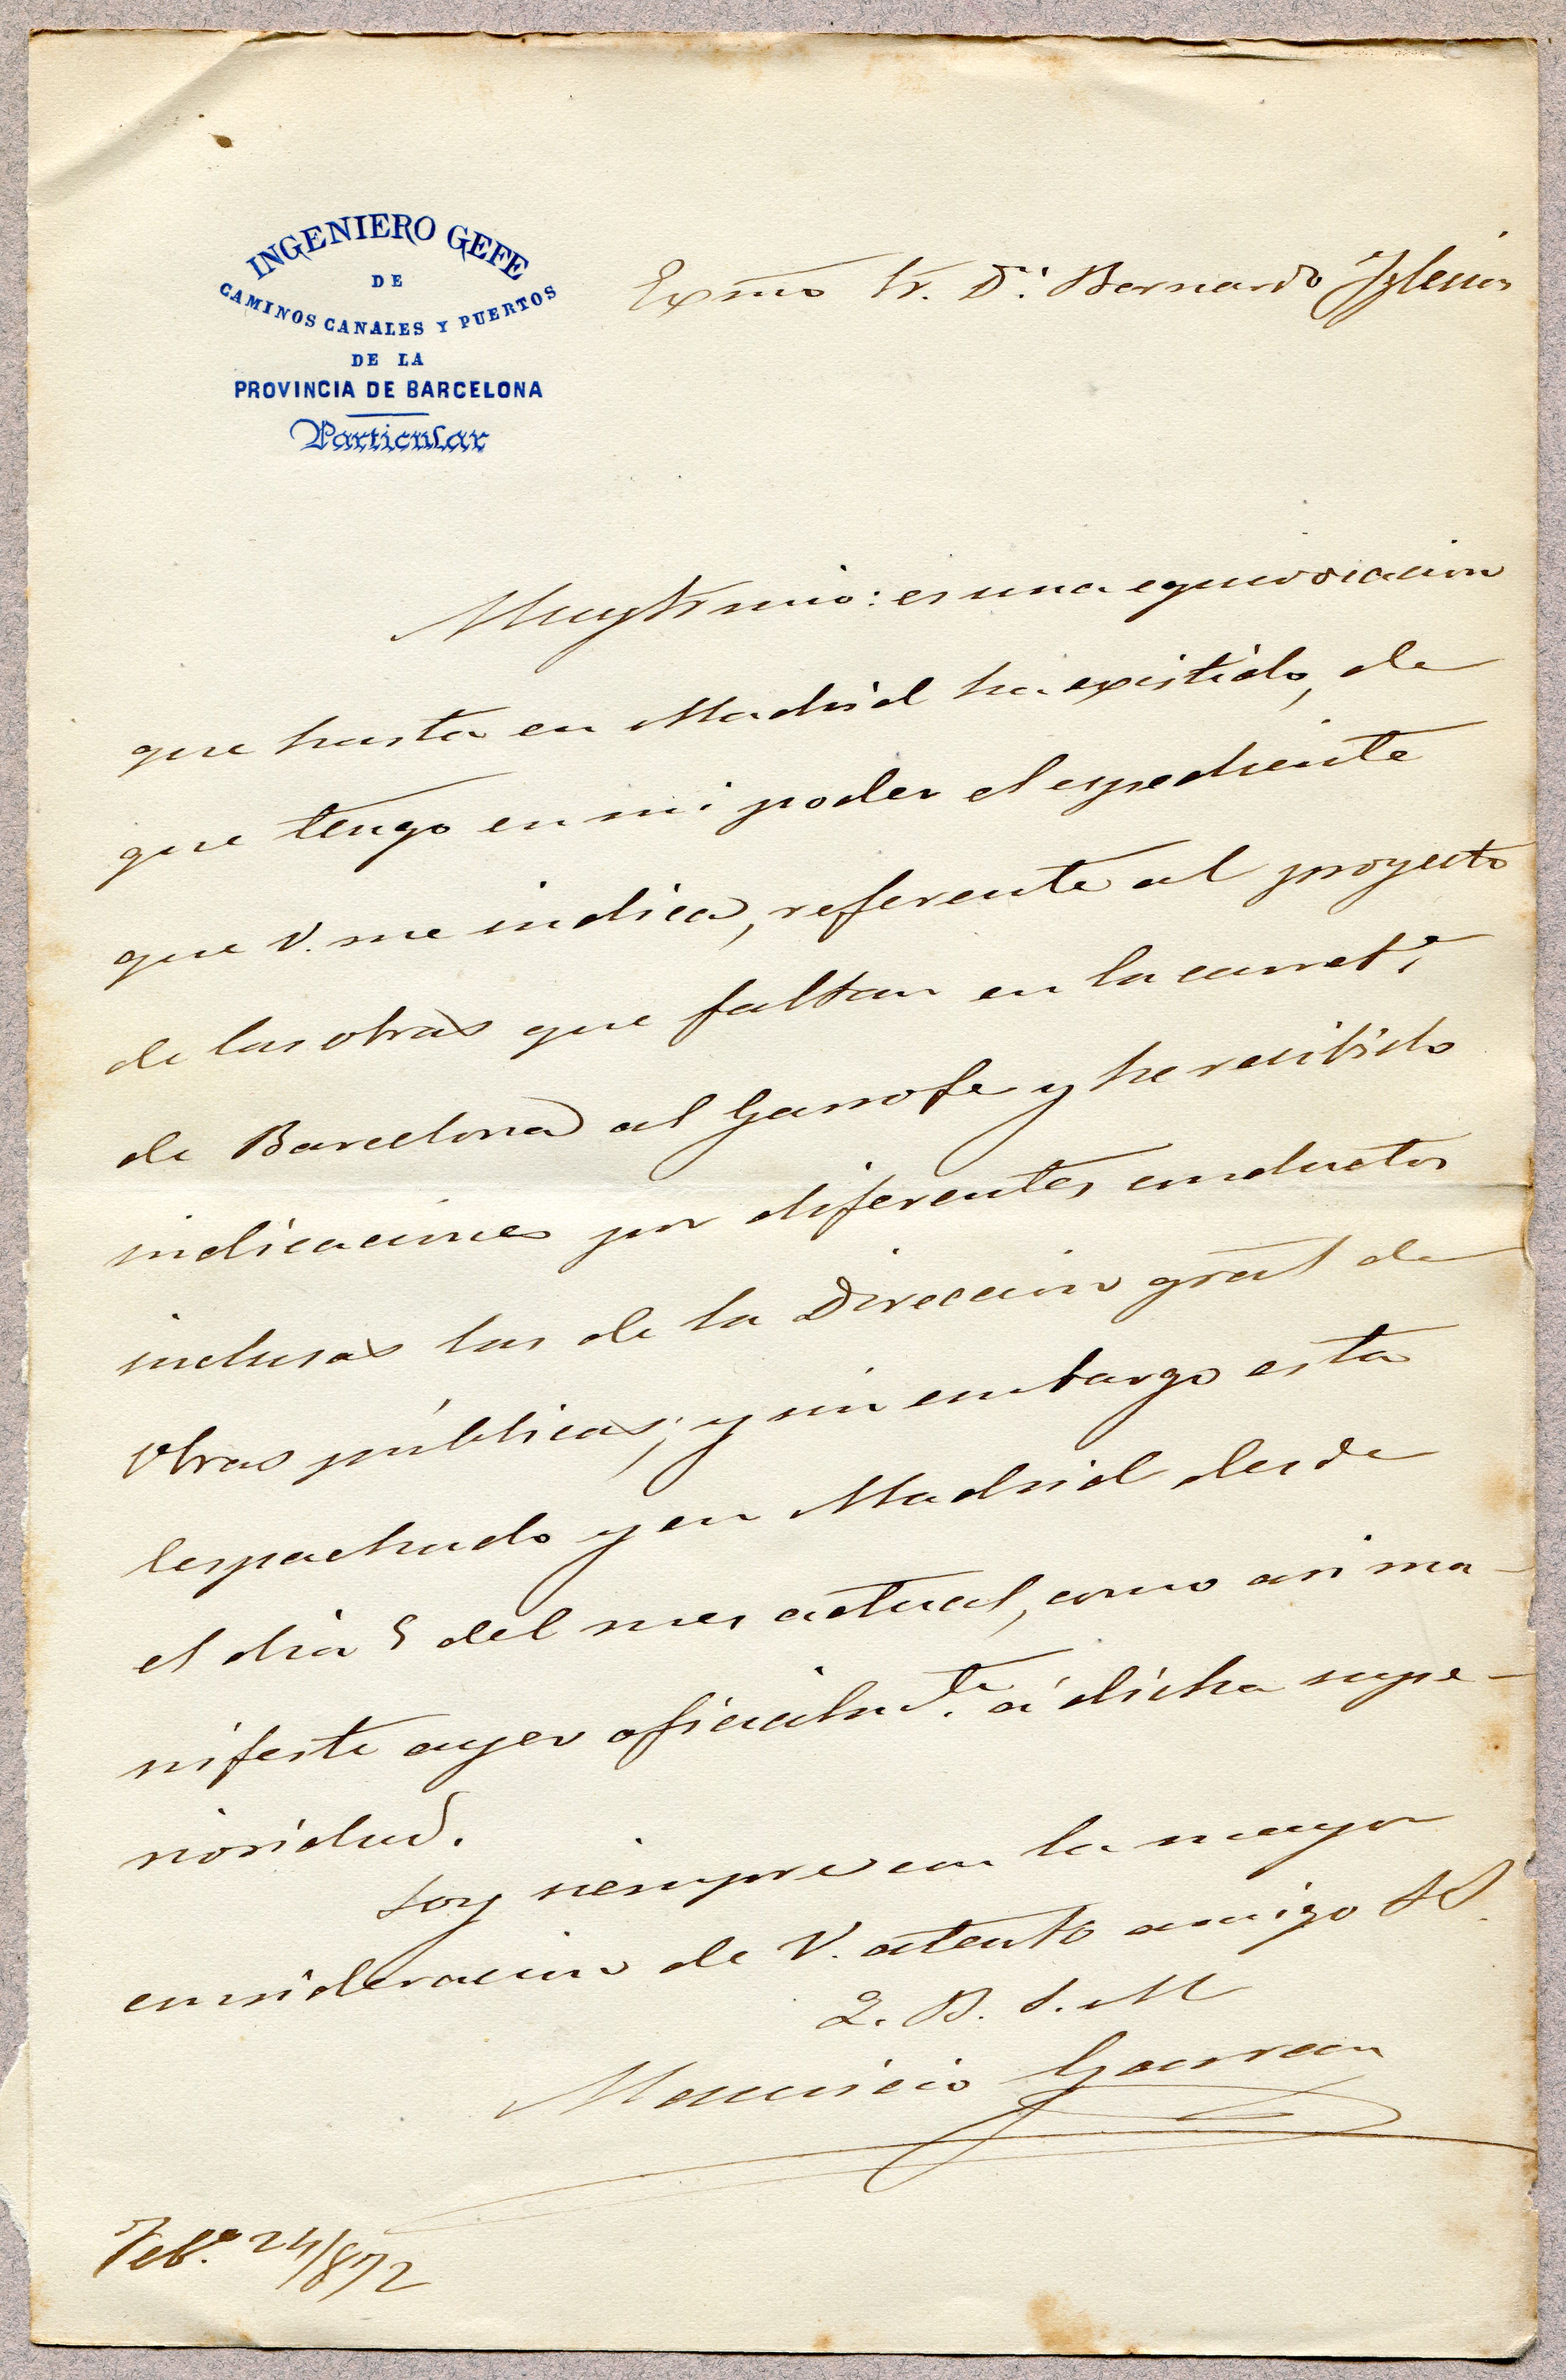 INGENIERO GEFE
DE
CAMINOS CANALES Y PUERTOS
DE LA
PROVINCIA DE BARCELONA
Particular
Exmo Sr. Dn. Bernardo Iglesias
Muy Sr mio: es una equivocacion
que hasta en Madrid ha existido, de
que tengo en mi poder el espediente
que V. me indica, referente al proyecto
de las obras que faltan en la carreta.
de Barcelona al Garrofe y he recibido
indicaciones por diferentes conductos
inclusas las de la Direccion gral de
Obras públicas; y sin embargo esta
despachado y en Madrid desde
el dia 5 del mes actual, como asi ma-
nifesté ayer oficialmte. á dicha supe-
rioridad.
Soy siempre con la mayor
consideracion de V. atento amigo SS.
Q. B. S. M
Mauricio Garran
Febo. 24/872